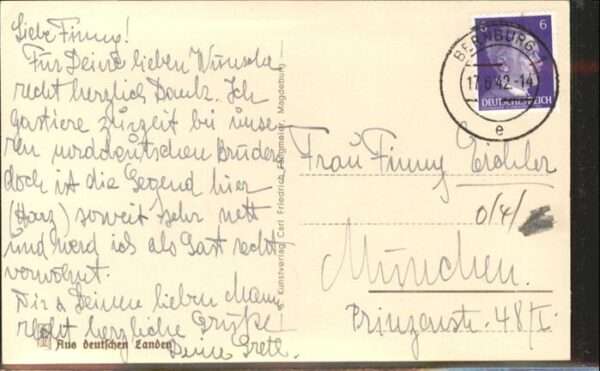 Liebe Finny!
Für Deine lieben Wünsche
recht herzlich Dank. Ich
gastiere zurzeit bei unse-
ren norddeutschen Brüdern
doch ist die Gegend hier
(Harz) soweit sehr nett
und werd ich als Gast recht
verwöhnt.
Dir & Deinem lieben Mann
recht herzliche Grüße!
Deine Gretl.
Aus deutschen Landen
Kunstverlag Carl Friedrich Magdeburg
6 6
DEUTSCHES REICH
BERNBURG
17.6.42-14
e
Frau Finny Eichler
0/4/
München.
Prinzenstr. 48/I.